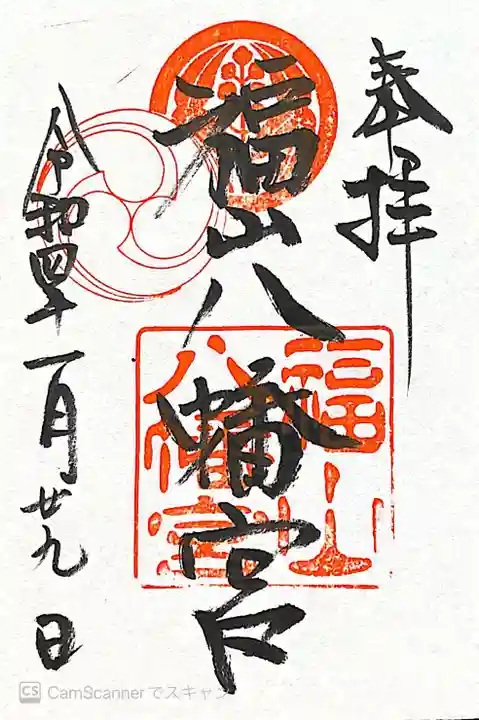 奉拝
福山八幡宮
福山
八幡宮
令和四年一月廿九日
CS CamScannerでスキャン